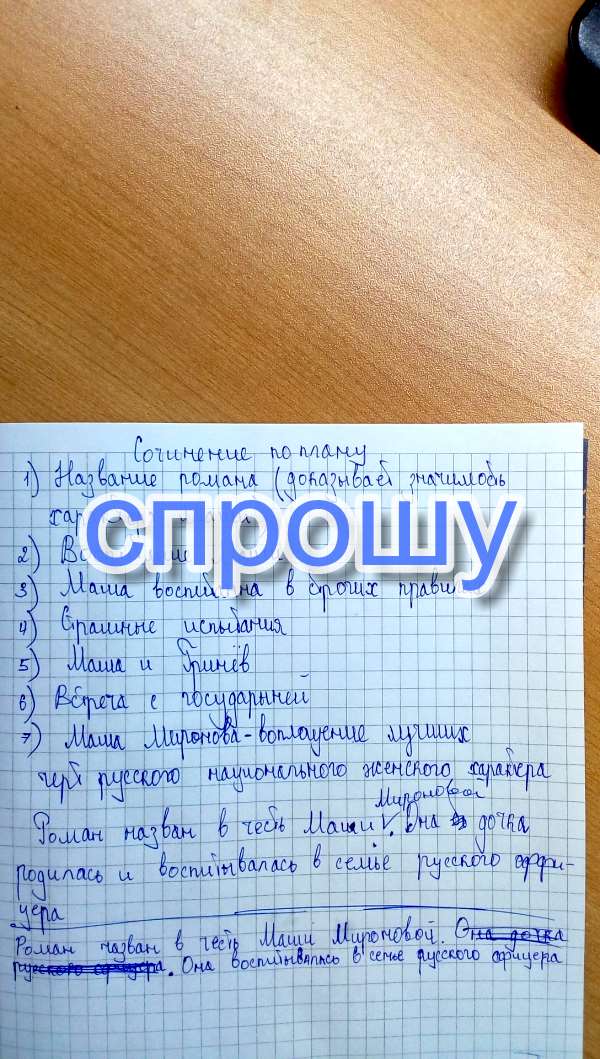 Сочинение по плану
1) Название романа (доказывает значимость
спрошу
2)
3) Маша в строгих
4) Страшные испытания
5) Маша и Гринёв
6) Встреча с государыней
7) Маша Миронова - воплощение лучших
черт русского национального женского характера
Мироновой
Роман назван в честь Маши V. Она дочка
родилась и воспитывалась в семье русского оффи-
цера
Роман назван в честь Маши Мироновой. Она дочка
русского офицера. Она воспитывалась в семье русского офицера